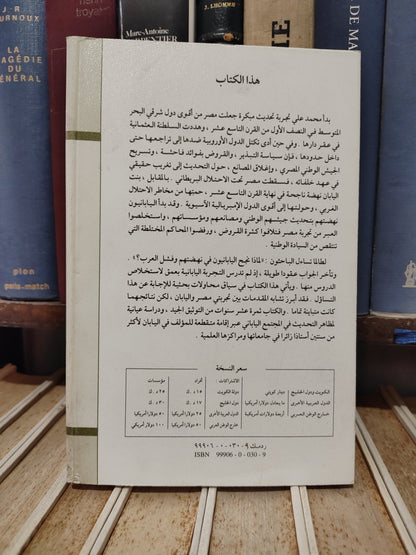 J R
TOURNOUX
LA
TRAGÉDIE
DU
GÉNÉRAL
plon
paris-match
henri
troyat
Marc-Antoine
CHARPENTIER
J. LHOMMER
DE MA
هذا الكتاب
بدأ محمد علي تجربة تحديث مبكرة جعلت مصر من أقوى دول شرقي البحر
المتوسط في النصف الأول من القرن التاسع عشر، وهددت السلطنة العثمانية
في عقر دارها. وفي حين أدى تكتل الدول الأوروبية ضدها إلى تراجعها حتى
داخل حدودها، فإن سياسة التبذير، والقروض بفوائد فاحشة، وتسريح
الجيش الوطني المصري، وإغلاق المصانع، حول التحديث إلى تغريب حقيقي
في عهد خلفائه، فسقطت مصر تحت الاحتلال البريطاني. بالمقابل، بنت
اليابان نهضة ناجحة في نهاية القرن التاسع عشر، حمتها من مخاطر الاحتلال
الغربي، وحولتها إلى أقوى الدول الإمبريالية الآسيوية. وقد بدأ اليابانيون
نهضتهم بتحديث جيشهم الوطني ومصانعهم ومؤسساتهم، واستخلصوا
العبر من تجربة مصر فتلافوا كثرة القروض، ورفضوا المحاكم المختلطة التي
تنتقص من السيادة الوطنية.
لطالما تساءل الباحثون: «لماذا نجح اليابانيون في نهضتهم وفشل العرب؟».
وتأخر الجواب عقودا طويلة، إذ لم تدرس التجربة اليابانية بعمق لاستخلاص
الدروس منها. ويأتي هذا الكتاب في سياق محاولات بحثية للإجابة عن هذا
التساؤل. فقد أبرز تشابه المقدمات بين تجربتي مصر واليابان، لكن نتائجهما
كانت متباينة تماما. والكتاب ثمرة عشر سنوات من التوثيق الجيد، ودراسة عيانية
لمظاهر التحديث في المجتمع الياباني عبر إقامة متقطعة للمؤلف في اليابان لأكثر
من سنتين أستاذا زائرا في جامعاتها ومراكزها العلمية.
سعر النسخة
الكويت ودول الخليج دينار كويتي
الدول العربية الأخرى ما يعادل دولارا أمريكيا
خارج الوطن العربي أربعة دولارات أمريكية
الاشتراكات: أفراد مؤسسات
دولة الكويت ١٥ د. ك ٢٥ د. ك
دول الخليج ١٧ د. ك ٣٠ د. ك
الدول العربية الأخرى ٢٥ دولارا أمريكيا ٥٠ دولارا أمريكيا
خارج الوطن العربي ٥٠ دولارا أمريكيا ١٠٠ دولار أمريكي
ردمك ٩ - ٠٣٠ - ٠ - ٩٩٩٠٦
ISBN 99906 - 0 - 030 - 9